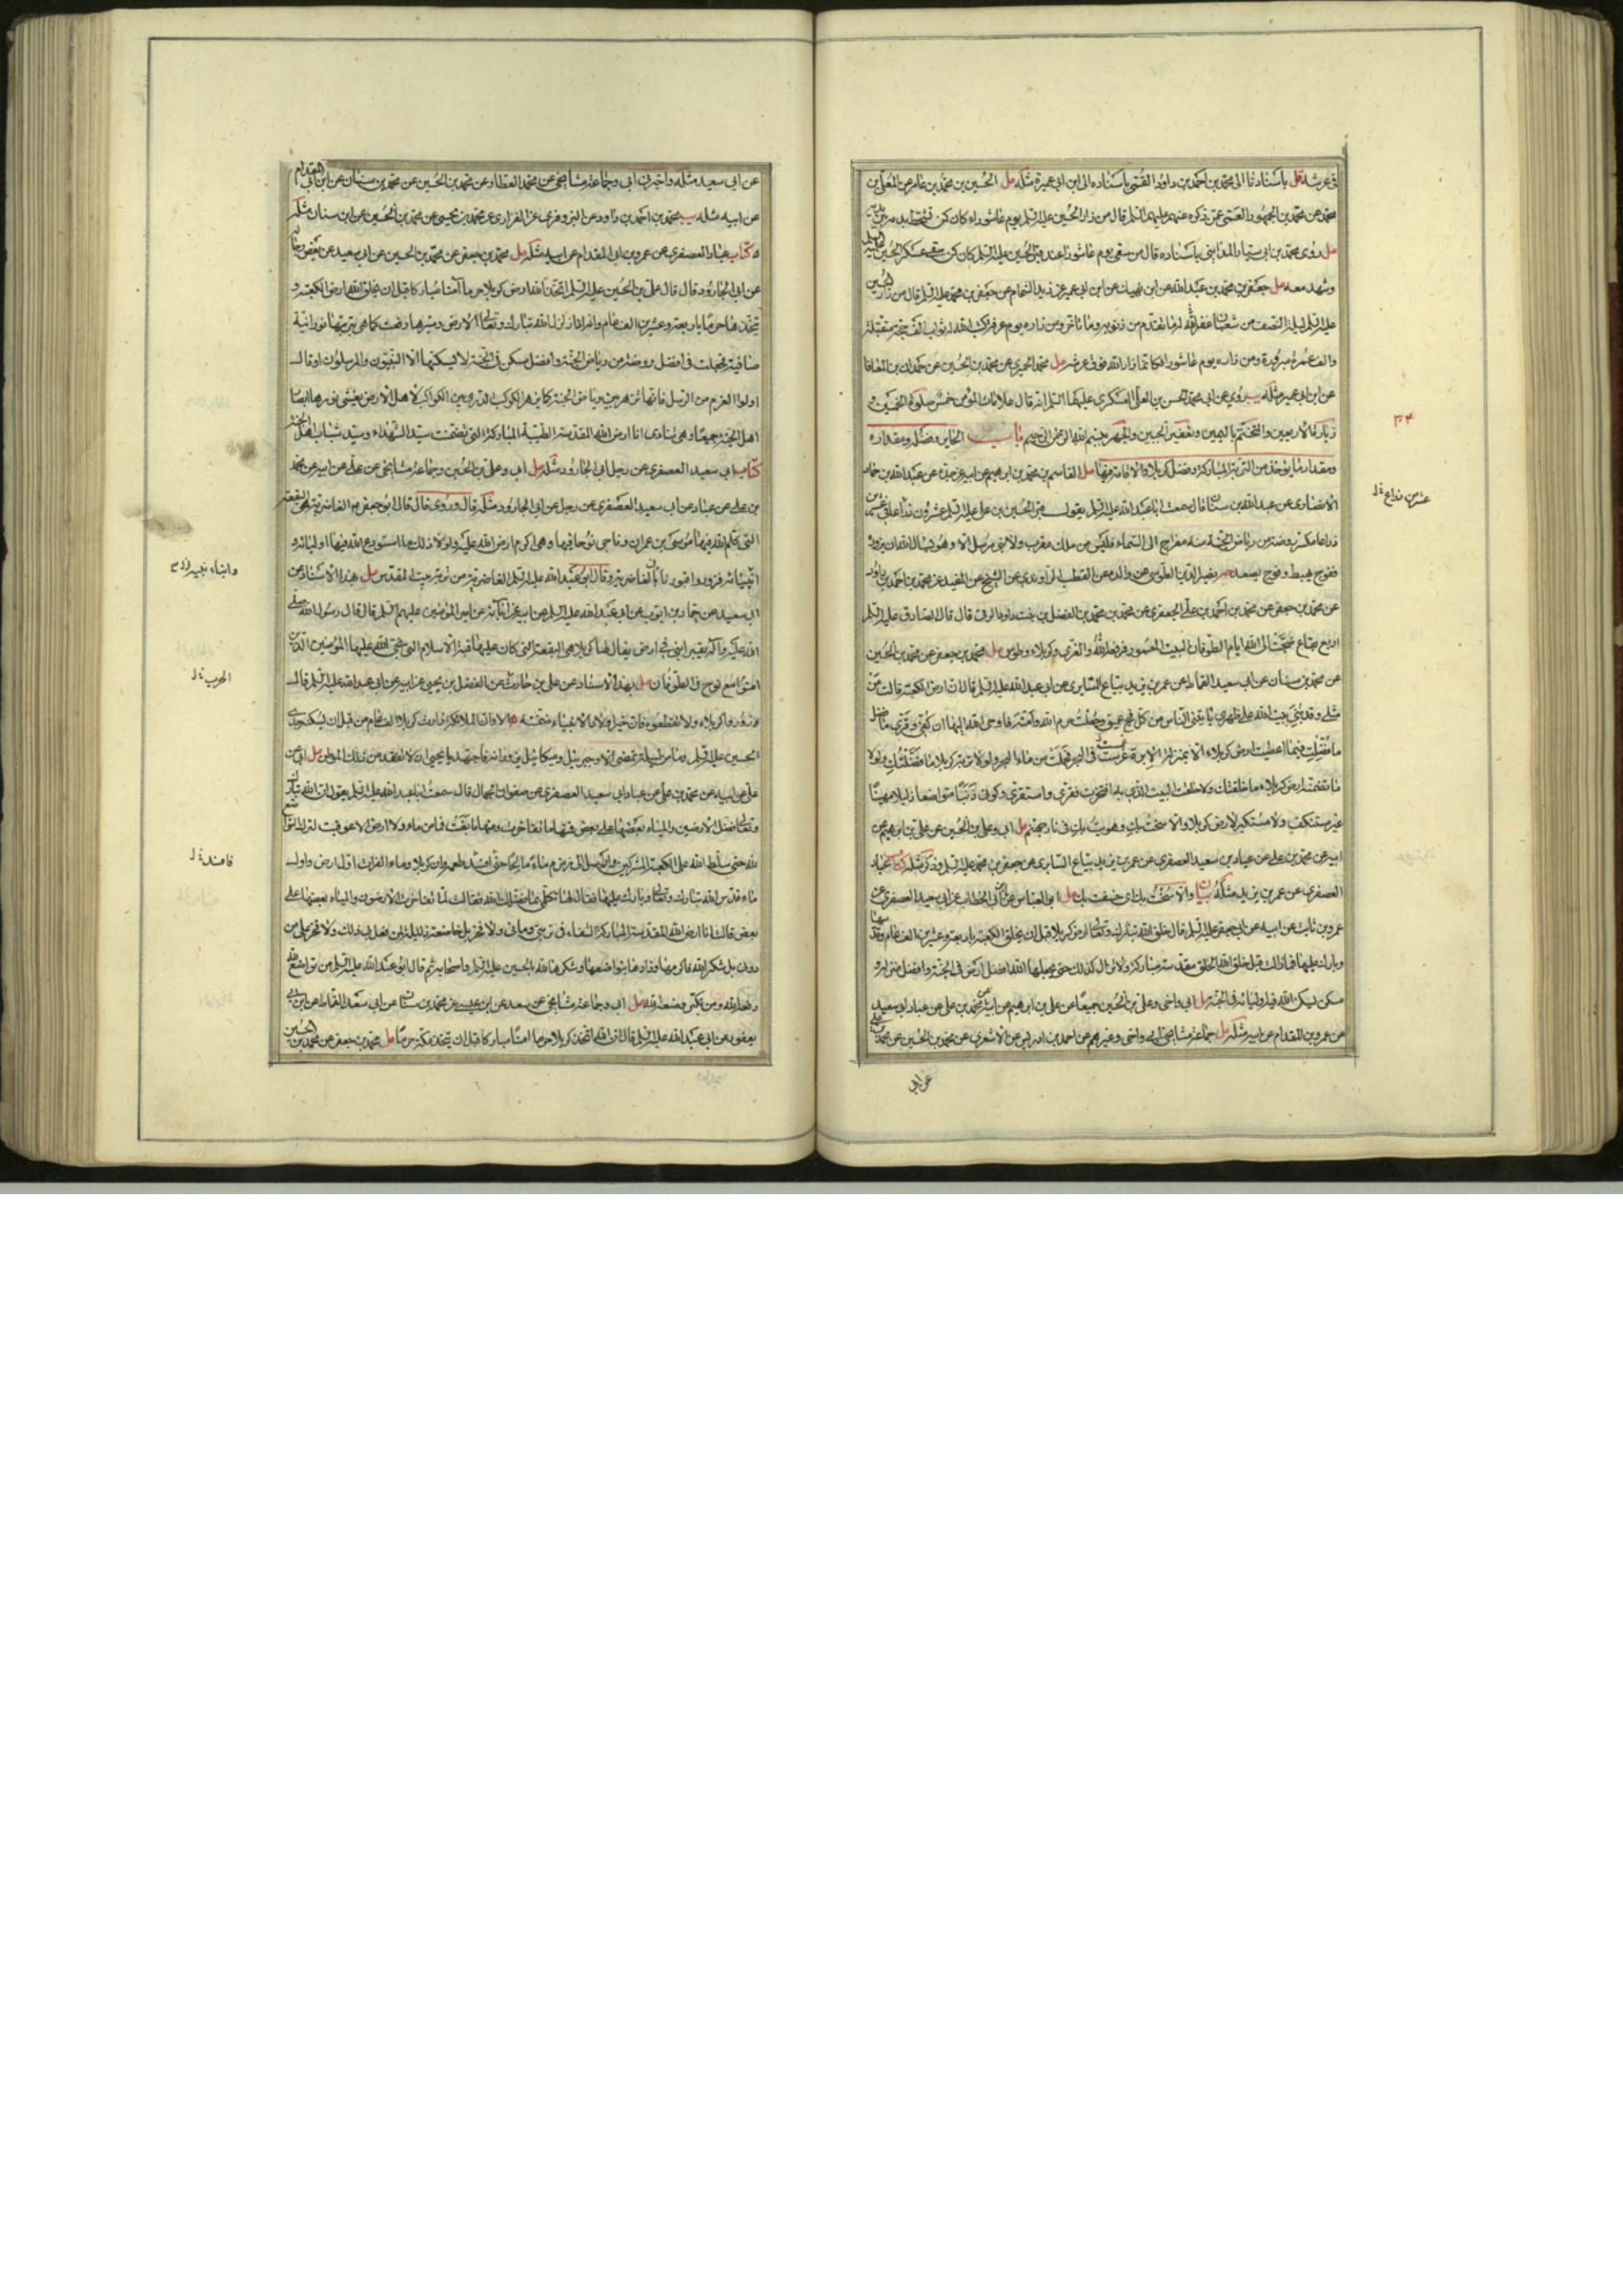 في عرشه قل باسنادنا الى محمد بن احمد بن داود القمي باسناده الى ابن ابي عميرة مثله مل الحسين بن محمد بن عامر عن المعلى بن
محمد عن محمد بن الجمهور العمى عمن ذكره عنهم عليهم السلم قال من زار الحسين عليه السلم يوم عاشوراء كان كمن تشحط بدمه بين يديه
مل روى محمد بن ابي سيار المدائني باسناده قال من سقى يوم عاشورا عند قبر الحسين عليه السلم كان كمن سقى عسكر الحسين عليه السلم
وشهد معه مل جعفر بن محمد بن عبد الله عن ابن نهيك عن ابن ابي عمير عن زيد الشحام عن جعفر بن محمد عليه السلم قال من زار الحسين
عليه السلم ليلة النصف من شعبان غفر الله له ما تقدم من ذنوبه وما تاخر ومن زاره يوم عرفة كتب الله له ثواب الف حجة متقبلة
والف عمرة مبرورة ومن زاره يوم عاشورا فكانما زار الله فوق عرشه مل محمد الحميري عن محمد بن الحسين عن حمدان بن المعافا
عن ابن ابي عمير مثله يب روي عن ابي محمد الحسن بن العلى العسكري عليهما السلم انه قال علامات المؤمن خمس صلوة الخمسين و
زيارة الاربعين والتختم باليمين وتعفير الجبين والجهر ببسم الله الرحمن الرحيم باب الحاير وفضله ومقداره
٣٠٤
ومقدار ما يوخذ من التربة المباركة وفضل كربلا والاقامة فيها مل القاسم بن محمد بن ابراهيم عن ابيه عن جده عن عبد الله بن حماد
الانصاري عن عبد الله بن سنان قال سمعت ابا عبد الله عليه السلم يقول قبر الحسين بن علي عليه السلم عشرون ذراعا في عشرين
ذراعا مكسرا روضة من رياض الجنة منه معراج الى السماء فليس من ملك مقرب ولا نبي مرسل الا وهو يسال الله ان يزوره
ففوج يهبط وفوج يصعد نصير الدين الطوسي عن والده عن القطب الراوندي عن الشيخ عن المفيد عن محمد بن احمد بن داود
عن محمد بن جعفر عن محمد بن احمد بن علي الجعفري عن محمد بن محمد بن الفضل بن بنت داود الرقى قال قال الصادق عليه السلم
اربع بقاع ضجت الى الله ايام الطوفان البيت المعمور فرفعه الله والغري وكربلاء وطوس مل محمد بن جعفر عن محمد بن الحسين
عن محمد بن سنان عن ابي سعيد القماط عن عمر بن يزيد بياع السابري عن ابي عبد الله عليه السلم قال ان ارض الكعبة قالت من
مثلي وقد بني بيت الله على ظهري ياتيني الناس من كل فج عميق وجعلت حرم الله وامنه فاوحى الله اليها ان كفي وقري ما فضل
ما فضلت به فيما اعطيت ارض كربلاء الا بمنزلة الابرة غرست في البحر فحملت من ماء البحر ولولا تربة كربلا ما فضلتك ولولا
ما تضمنه ارض كربلاء ما خلقتك ولا خلقت البيت الذي به افتخرت فقري واستقري وكوني ذنبا متواضعا ذليلا مهينا
غير مستنكف ولا مستكبر لارض كربلا والا سخت بك وهويت بك في نار جهنم مل ابي وعلي بن الحسين عن علي بن ابراهيم عن
ابيه عن محمد بن علي عن عباد بن سعيد العصفري عن عمر بن يزيد بياع السابري عن جعفر بن محمد عليه السلم وذكر مثله كتاب عباد
العصفري عن عمر بن يزيد مثله بيان والا سخت بك اي خسفت بك مل ابو العباس عن ابن ابي الخطاب عن ابي سعيد العصفري عن
عمرو بن ثابت عن ابيه عن ابي جعفر عليه السلم قال خلق الله تبارك وتعالى ارض كربلا قبل ان يخلق الكعبة باربعة وعشرين الف عام وقدسها
وبارك عليها فما زالت قبل خلق الله الخلق مقدسة مباركة ولا تزال كذلك حتى يجعلها الله افضل ارض في الجنة وافضل منزل و
مسكن يسكن الله فيه اوليائه في الجنة مل ابي واخي وعلي بن الحسين جميعا عن علي بن ابراهيم عن ابيه عن محمد بن علي عن عباد ابي سعيد
عن عمرو بن المقدام عن ابيه مثله مل جماعة مشايخي ابي واخي وغيرهم عن احمد بن ادريس عن الاشعري عن محمد بن الحسين عن محمد بن علي
عن ابي
عن ابي سعيد مثله واخبرني ابي وجماعة مشايخي عن محمد العطار عن محمد بن الحسين عن محمد بن سنان عن ابن ابي المقدام
عن ابيه مثله يب محمد بن احمد بن داود عن البزوفري عن الفزاري عن محمد بن يحيى عن محمد بن الحسين عن ابن سنان مثله
كتاب عباد العصفري عن عمرو بن ابي المقدام عن ابيه مثله مل محمد بن جعفر عن محمد بن الحسين عن ابي سعيد عن بعض رجاله
عن ابي الجارود قال قال علي بن الحسين عليه السلم اتخذ الله ارض كربلا حرما آمنا مباركا قبل ان يخلق الله ارض الكعبة و
يتخذها حرما باربعة وعشرين الف عام وانه اذا زلزل الله تبارك وتعالى الارض وسيرها رفعت كما هي بتربتها نورانية
صافية فجعلت في افضل روضة من رياض الجنة وافضل مسكن في الجنة لا يسكنها الا النبيون والمرسلون او قال
اولوا العزم من الرسل فانها لتزهر بين رياض الجنة كما يزهر الكوكب الدري بين الكواكب لاهل الارض يغشى نورها ابصار
اهل الجنة جميعا وهي تنادى انا ارض الله المقدسة الطيبة المباركة التي تضمنت سيد الشهداء وسيد شباب اهل الجنة
كتاب ابي سعيد العصفري عن رجل ابي الجارود مثله مل ابي وعلي بن الحسين وجماعة مشايخي عن علي عن ابيه عن محمد
بن علي عن عباد عن ابي سعيد العصفري عن رجل عن ابي الجارود مثله قال وروى قال قال ابو جعفر ع الغاضرية هي البقعة
التي كلم الله فيها موسى بن عمران وناجى نوحا فيها وهي اكرم ارض الله عليه ولولا ذلك ما استودع الله فيها اوليائه و
انبيائه فزوروا قبورنا بالغاضرية وقال ابو عبد الله عليه السلم الغاضرية من تربة بيت المقدس مل بهذا الاسناد عن
وابناء نبيه
ابي سعيد عن حماد بن ايوب عن ابي عبد الله عليه السلم عن ابيه عن آبائه عن امير المؤمنين عليهم السلم قال قال رسول الله صلى
الله عليه وآله يقبر ابني في ارض يقال لها كربلا هي البقعة التي كان عليها قبة الاسلام التي نجى الله عليها المؤمنين الذين
امنوا مع نوح في الطوفان مل بهذا الاسناد عن علي بن حارث عن الفضل بن يحيى عن ابيه عن ابي عبد الله عليه السلم قال
زوروا كربلاء ولا تقطعوه فان خير اولاد الانبياء ضمنته الا وان الملائكة زارت كربلاء الف عام من قبل ان يسكنه جدي
الحسين عليه السلم وما من ليلة تمضي الا وجبرئيل وميكائيل يزورانه فاجتهد يا يحيى ان لا تفقد من ذلك الموطن مل ابي عن
علي عن ابيه عن محمد بن علي عن عباد ابي سعيد العصفري عن صفوان الجمال قال سمعت ابا عبد الله عليه السلم يقول ان الله تبارك
وتعالى فضل الارضين والمياه بعضها على بعض فمنها ما تفاخرت ومنها ما بغت فما من ماء ولا ارض الا عوقبت لترك التواضع
لله حتى سلط الله على الكعبة المشركين وارسل الى زمزم ماء مالحا حتى افسد طعمه وان كربلا وماء الفرات اول ارض واول
ماء قدس الله تبارك وتعالى وبارك عليها فقال لها تكلمي بما فضلك الله فقالت لما تفاخرت الارضون والمياه بعضها على
بعض قالت انا ارض الله المقدسة المباركة الشفاء في تربتي ومائي ولا فخر بل خاضعة ذليلة لمن فعل بي ذلك ولا فخر على من
دوني بل شكرا لله فاكرمها وزادها بتواضعها وشكرها لله بالحسين عليه السلم واصحابه ثم قال ابو عبد الله عليه السلم من تواضع لله
رفعه الله ومن تكبر وضعه الله مل ابي وجماعة مشايخي عن سعد عن ابن عيسى عن محمد بن سنان عن ابي سعيد القماط عن ابن ابي
يعفور عن ابي عبد الله عليه السلم قال ان الله اتخذ كربلا حرما امنا مباركا قبل ان يتخذ مكة حرما مل محمد بن جعفر عن محمد بن الحسين